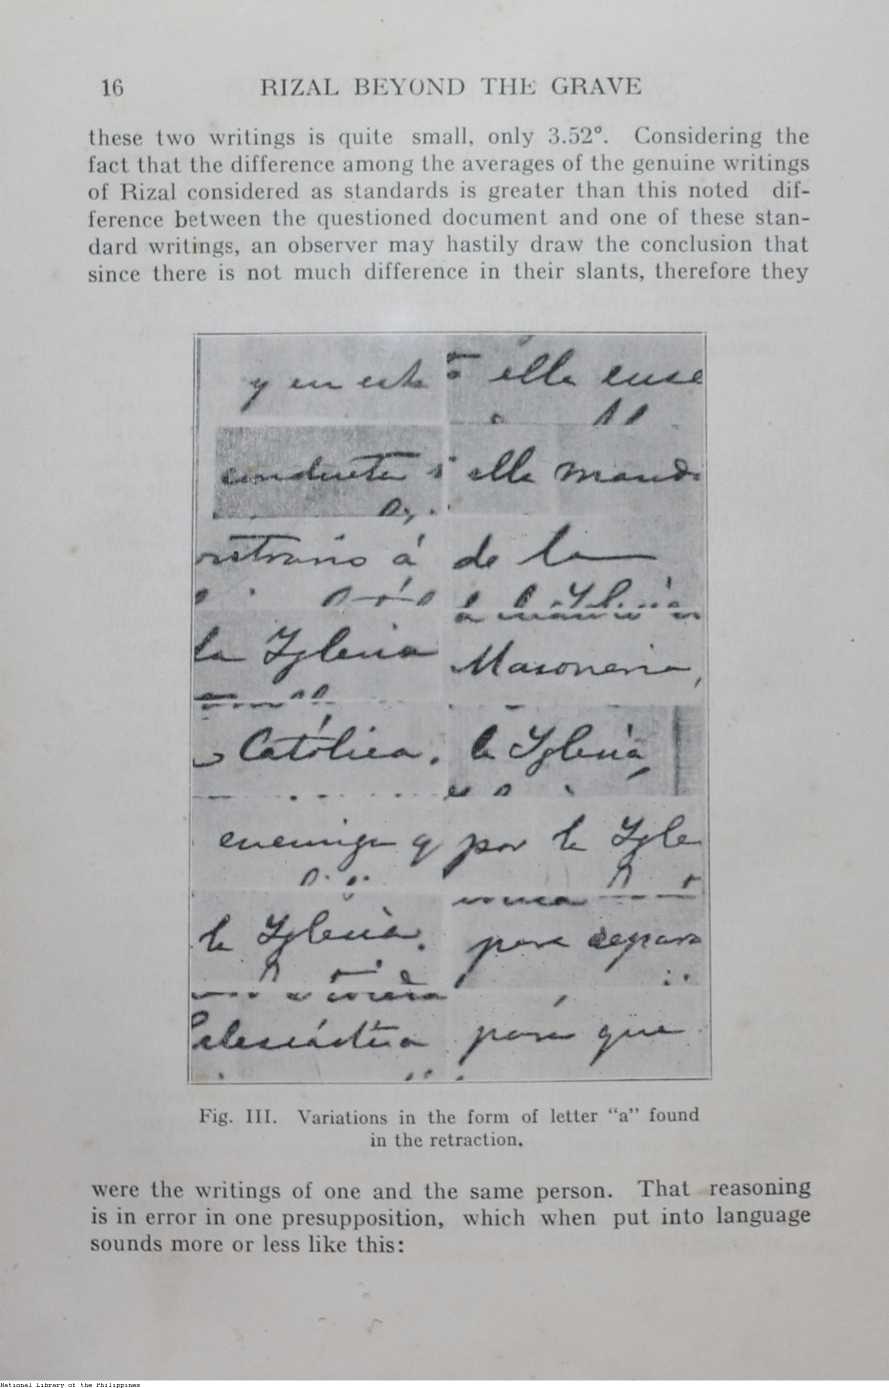 16 RIZAL BEYOND THE GRAVE
these two writings is quite small, only 3.52°. Considering the
fact that the difference among the averages of the genuine writings
of Rizal considered as standards is greater than this noted dif-
ference between the questioned document and one of these stan-
dard writings, an observer may hastily draw the conclusion that
since there is not much difference in their slants, therefore they
y en esta ella ense
conducta ella mand
á de la
la Iglesia Masoneria,
Católica. la Iglesia,
enemiga q por la Igle
la Iglesia. para separa
para que
Fig. III. Variations in the form of letter "a" found
in the retraction.
were the writings of one and the same person. That reasoning
is in error in one presupposition, which when put into language
sounds more or less like this:
National Library of the Philippines